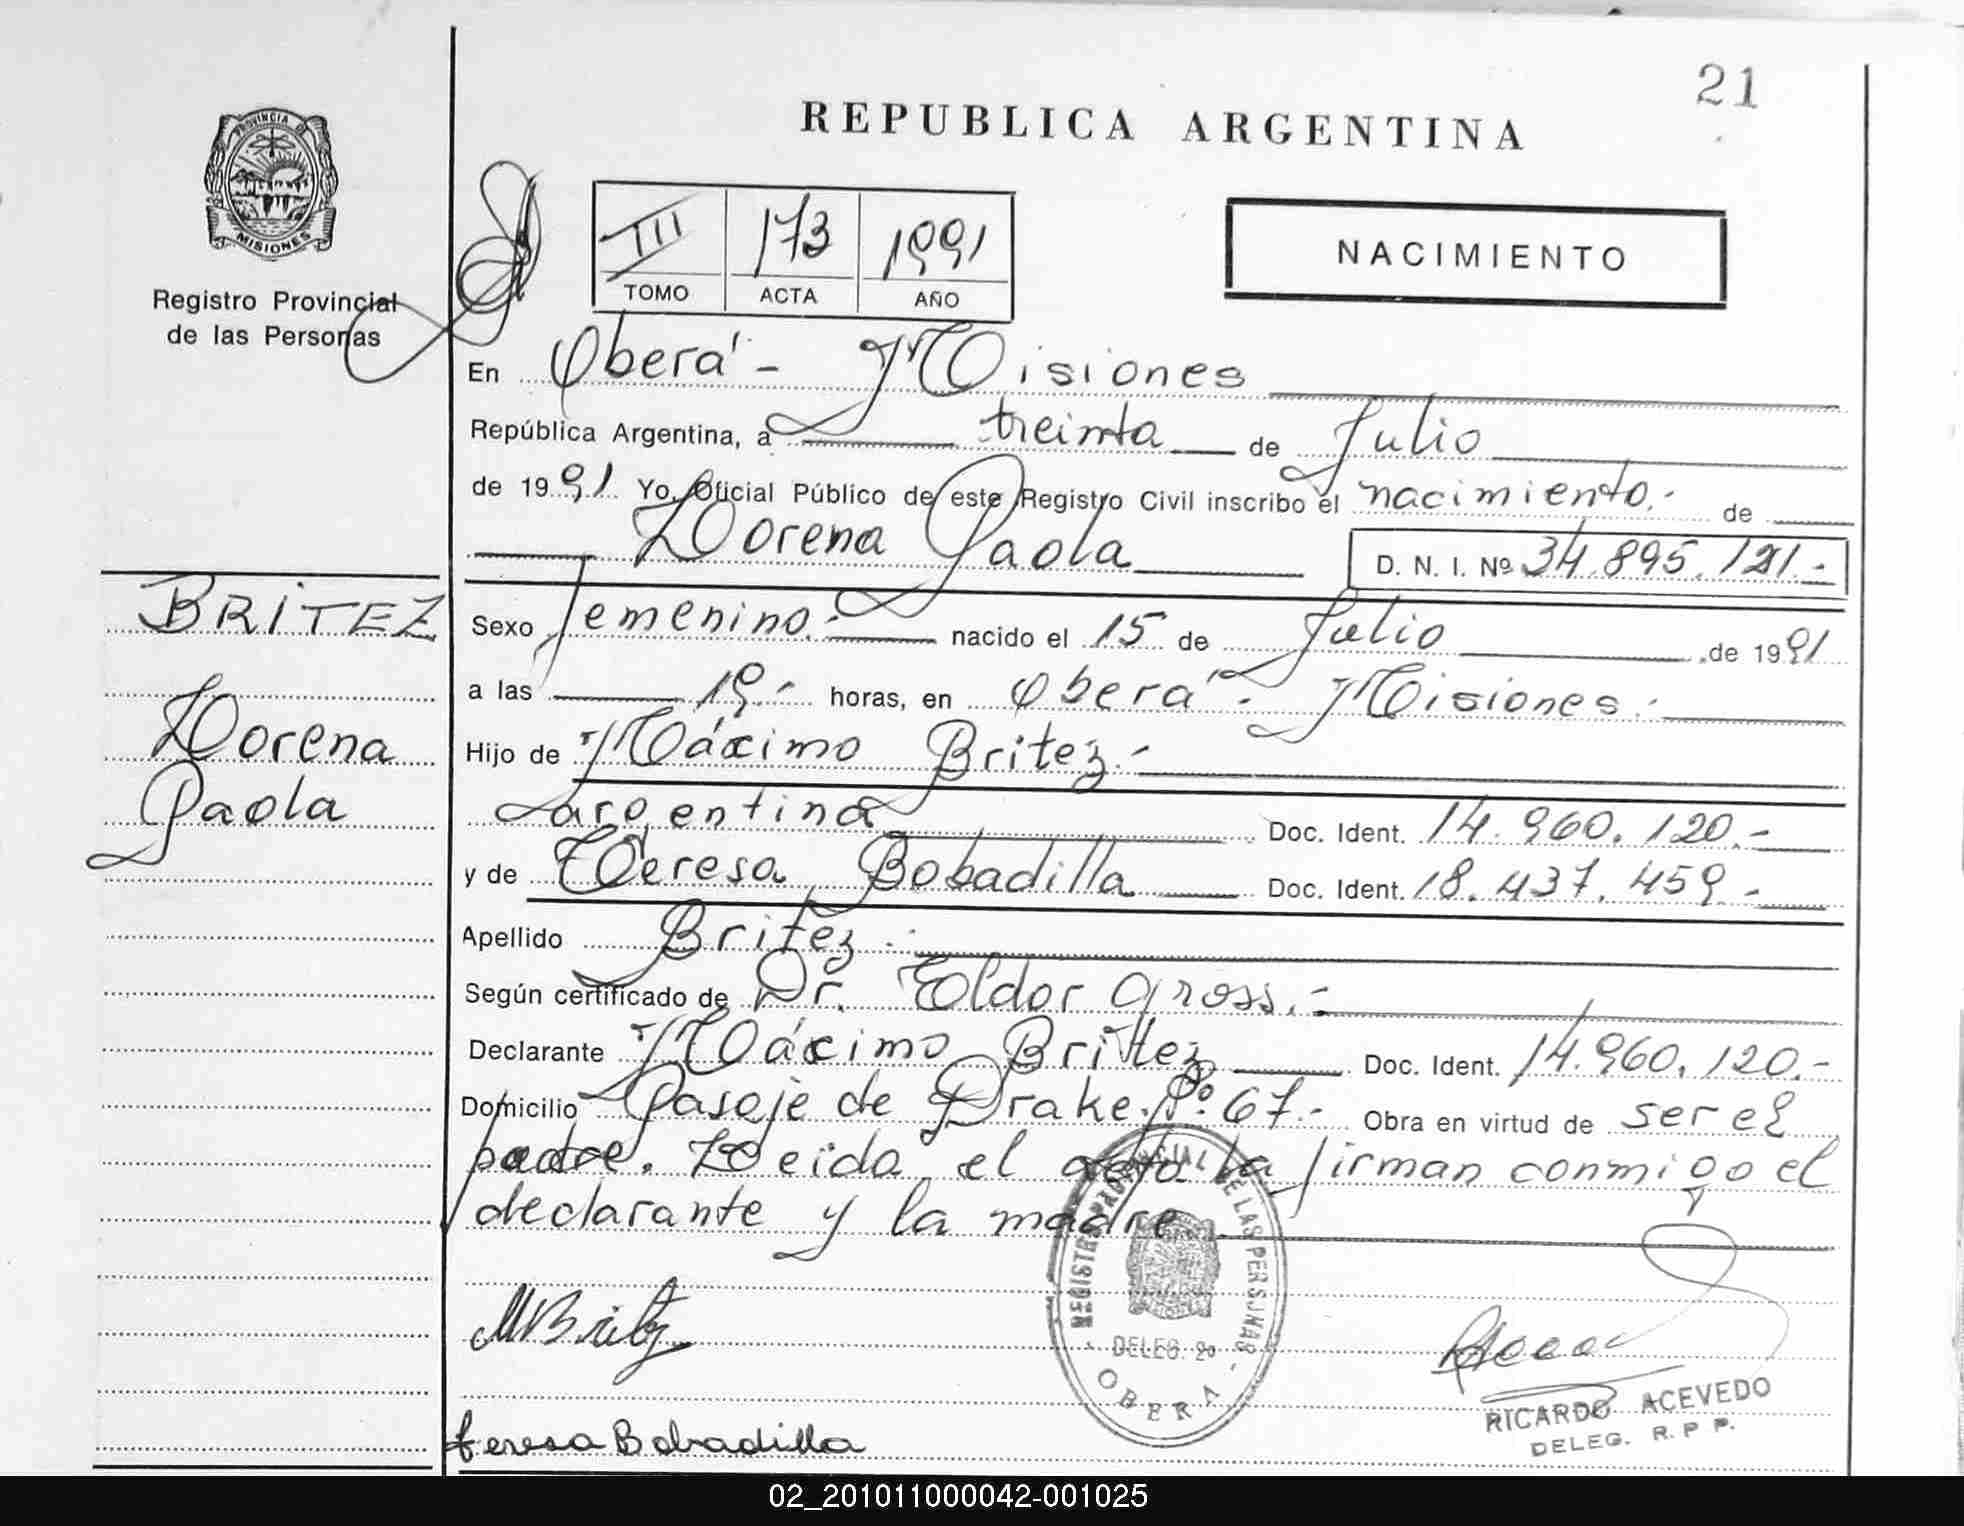 21
REPUBLICA ARGENTINA
PROVINCIA DE
MISIONES
Registro Provincial
de las Personas
III 173 1991
TOMO ACTA AÑO
NACIMIENTO
En Oberá - Misiones
República Argentina, a treinta de Julio
de 1991 Yo, Oficial Público de este Registro Civil inscribo el nacimiento.- de
Lorena Paola D. N. I. Nº 34.895.121.-
BRITEZ
Lorena
Paola
Sexo femenino.- nacido el 15 de Julio de 1991
a las 19.- horas, en Oberá - Misiones.-
Hijo de Máximo Britez.-
argentina Doc. Ident. 14.960.120.-
y de Teresa Bobadilla Doc. Ident. 18.437.459.-
Apellido Britez.-
Según certificado de Dr. Eldor Gross.-
Declarante Máximo Britez Doc. Ident. 14.960.120.-
Domicilio Pasaje de Drake Nº 67.- Obra en virtud de ser el
padre. Leida el acta la firman conmigo el
declarante y la madre.
MBritez
REGISTRO PROVINCIAL DE LAS PERSONAS
DELEG. 2º
- OBERA -
RICARDO ACEVEDO
DELEG. R. P P.
teresa Bobadilla
02_201011000042-001025